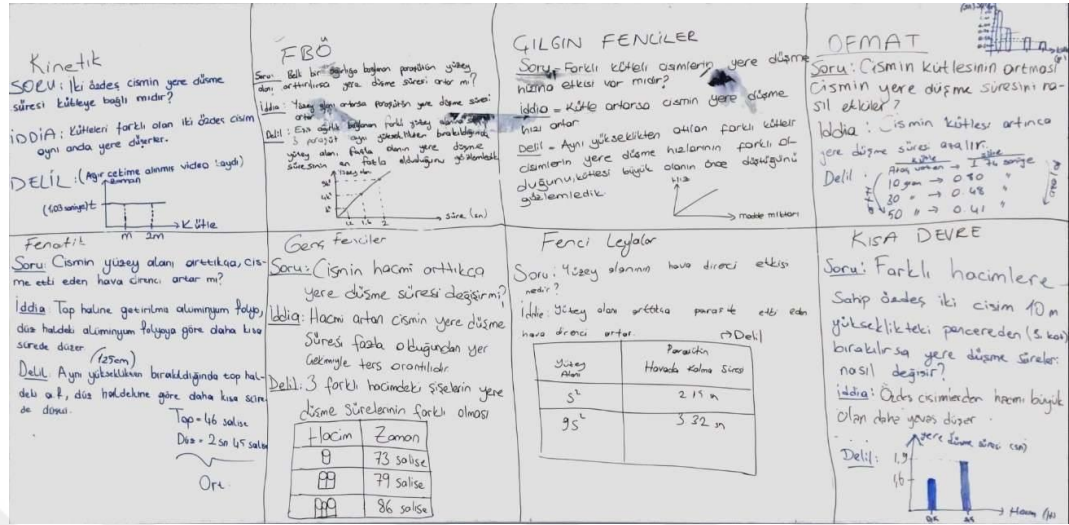 Kinetik
SORU: İki özdeş cismin yere düşme
süresi kütleye bağlı mıdır?
İDDİA: Kütleleri farklı olan iki özdeş cisim
aynı anda yere düşerler.
DELİL: (Ağır çekime alınmış video izlaydı)
zaman
(1,03 saniye) t
m 2m
Kütle
FBÖ
Soru: Belli bir ağırlığa bağlanan paraşütün yüzey
alanı arttırılırsa yere düşme süresi artar mı?
İddia: Yüzey alanı artarsa paraşütün yere düşme süresi
artar
Delil: Eşit ağırlık bağlanan farklı yüzey alanına
3 paraşüt aynı yükseklikten bırakıldığında
yüzey alanı fazla olanın yere düşme
süresinin en fazla olduğunu gözlemledik
Yüzey alanı
süre (sn)
ÇILGIN FENCİLER
Soru - Farklı kütleli cisimlerin yere düşme
hızına etkisi var mıdır?
iddia - Kütle artarsa cismin yere düşme
hızı artar
Delil - Aynı yükseklikten atılan farklı kütleli
cisimlerin yere düşme hızlarının farklı ol-
duğunu, kütlesi büyük olanın önce düştüğünü
gözlemledik
Hız
madde miktarı
DEMAT
Soru: Cismin kütlesinin artması
cismin yere düşme süresini na-
sıl etkiler?
İddia: Cismin kütlesi artınca
yere düşme süresi azalır.
Delil
kütle süre
10 gram → 0.80 "
30 " → 0.48 "
50 " → 0.41 "
Fenatik
Soru: Cismin yüzey alanı arttıkça, cis-
me etki eden hava direnci artar mı?
İddia Top haline getirilmiş alüminyum folyo,
düz haldeki alüminyum folyoya göre daha kısa
sürede düşer.
(125cm)
Delil: Aynı yükseklikten bırakıldığında top hal-
deki a.f, düz haldekine göre daha kısa süre-
de düştü.
Top = 46 salise
Düz = 2 sn 45 salise
Ort.
Genç Fenciler
Soru: Cismin hacmi arttıkça
yere düşme süresi değişirmi?
İddia: Hacmi artan cismin yere düşme
süresi fazla olduğundan yer
çekimiyle ters orantılıdır.
Delil: 3 farklı hacimdeki şişelerin yere
düşme sürelerinin farklı olması
Hacim Zaman
73 salise
79 salise
86 salise
Fenci Leylalar
Soru: Yüzey alanının hava direnci etkisi
nedir?
İddia: Yüzey alanı arttıkça paraşüte etki eden
hava direnci artar.
→ Delil
Yüzey Alanı
Paraşütün Havada Kalma Süresi
S² 2 15 sn
9S² 3 32 sn
KISA DEVRE
Soru: Farklı hacimlere
Sahip özdeş iki cisim 10 m
yükseklikteki pencereden (3. kat)
bırakılırsa yere düşme süreleri
nasıl değişir?
iddia: Özdeş cisimlerden hacmi büyük
olan daha yavaş düşer.
Delil:
yere düşme süresi (sn)
1,9
1,6
Hacim